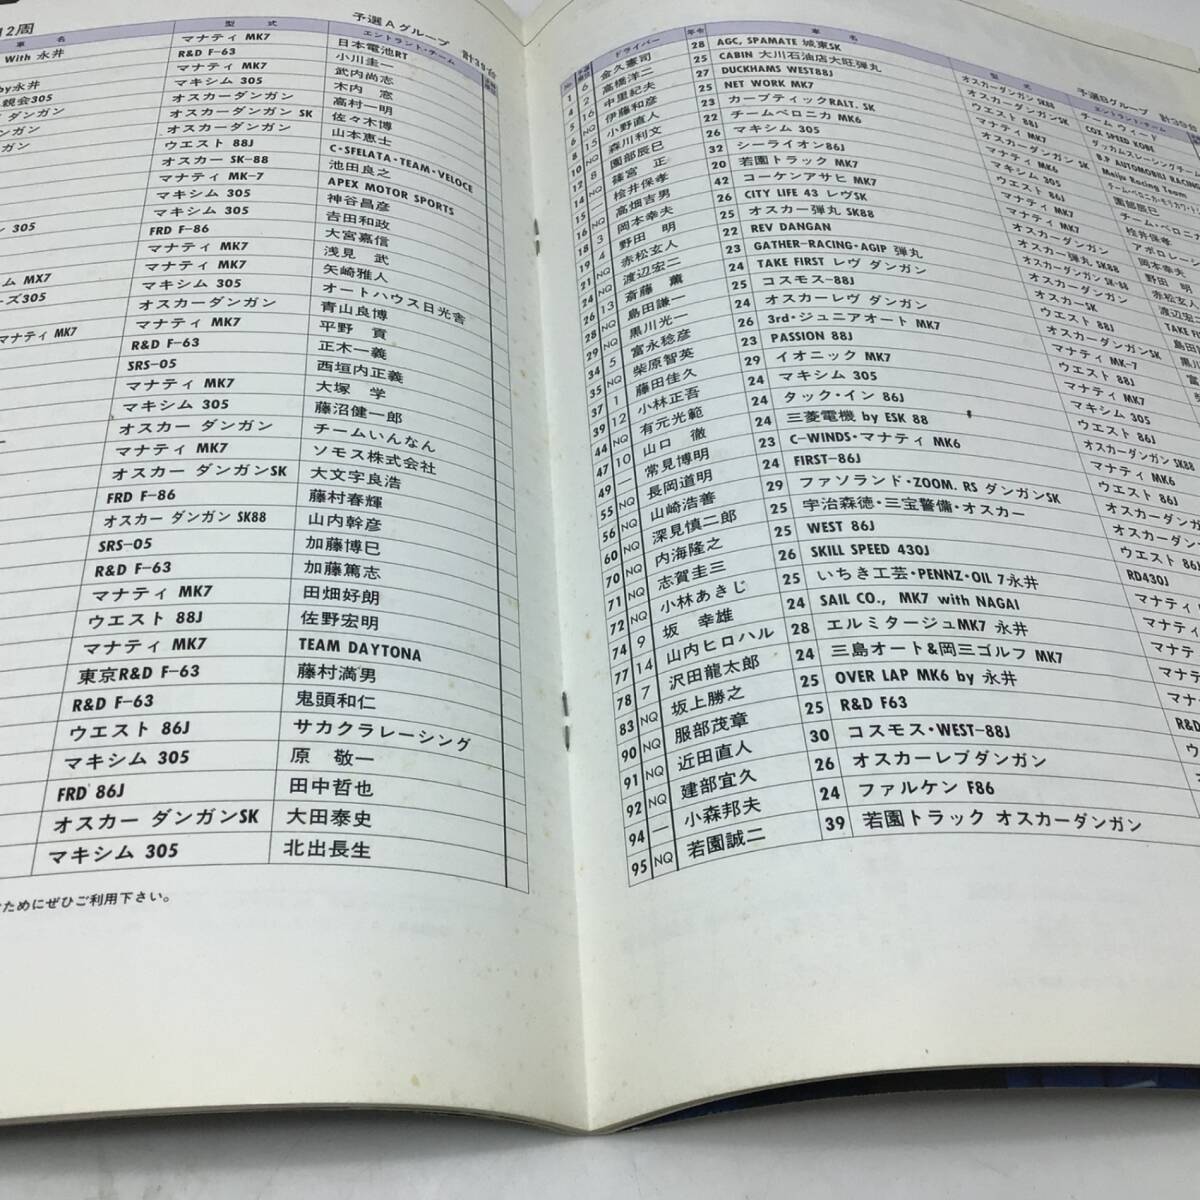 12周
予選Aグループ 計39台
車名 型式 エントラント・チーム
With 永井 マナティ MK7 日本電池RT
R&D F-63 小川圭一
by永井 マナティ MK7 武内尚志
親会305 マキシム 305 木内 窓
ダンガン オスカーダンガン 高村一明
ンガン オスカーダンガン SK 佐々木博
ガン ウエスト 88J 山本恵士
オスカー SK-88 C・SFELATA・TEAM・VELOCE
マナティ MK-7 池田良之
マキシム 305 APEX MOTOR SPORTS
マキシム 305 神谷昌彦
ン 305 FRD F-86 吉田和政
マナティ MK7 大宮嘉信
マナティ MK7 浅見 武
ム MX7 マキシム 305 矢崎雅人
ーズ305 オスカーダンガン オートハウス日光舎
マナティ MK7 青山良博
マナティ MK7 R&D F-63 平野 貢
SRS-05 正木一義
マナティ MK7 西垣内正義
マキシム 305 大塚 学
オスカー ダンガン 藤沼健一郎
マナティ MK7 チームいんなん
オスカー ダンガンSK ソモス株式会社
FRD F-86 大文字良浩
オスカー ダンガン SK88 藤村春輝
SRS-05 山内幹彦
R&D F-63 加藤博巳
マナティ MK7 加藤篤志
ウエスト 88J 田畑好朗
マナティ MK7 佐野宏明
東京R&D F-63 TEAM DAYTONA
R&D F-63 藤村満男
ウエスト 86J 鬼頭和仁
マキシム 305 サカクラレーシング
FRD 86J 原 敬一
オスカー ダンガンSK 田中哲也
マキシム 305 大田泰史
北出長生
ためにぜひご利用下さい。
予選Bグループ 計39台
No. ドライバー 年令 車名 型式 エントラント・チーム
1 6 金久憲司 28 AGC, SPAMATE 城東SK オスカーダンガン SK88 チーム ウィード
4 2 高橋洋二 25 CABIN 大川石油店大旺弾丸 オスカーダンガンSK COX SPEED KOBE
5 16 中里紀夫 27 DUCKHAMS WEST88J ウエスト 88J ダッカムスレーシングチーム
6 NQ 伊藤和彦 25 NET WORK MK7 マナティ MK7 B.P AUTOMOBILI RACING
8 15 小野直人 23 カーブティックRALT. SK オスカーダンガン SK Meijo Racing Team
10 NQ 森川利文 22 チームベロニカ MK6 マナティ MK6
12 NQ 園部辰巳 26 マキシム 305 マキシム 305 園部辰巳
14 8 篠宮 正 32 シーライオン86J ウエスト 86J チーム・ベロニカ
15 NQ 桧井保孝 20 若園トラック MK7 マナティ MK7 桧井保孝
16 NQ 高畑吉男 42 コーケンアサヒ MK7 マナティ MK7 アポロレーシ
18 3 岡本幸夫 26 CITY LIFE 43 レヴSK オスカーダンガン 岡本幸夫
19 4 野田 明 25 オスカー弾丸 SK88 オスカー弾丸 SK88 野田 明
21 NQ 赤松玄人 22 REV DANGAN オスカーダンガン SK-88 赤松玄
24 NQ 渡辺宏二 23 GATHER-RACING・AGIP 弾丸 オスカーダンガン 渡辺宏
26 13 斎藤 薫 24 TAKE FIRST レヴ ダンガン オスカーSK TAKE
28 NQ 島田謙一 25 コスモス-88J ウエスト 88J 島田
29 NQ 黒川光一 24 オスカーレヴ ダンガン オスカーダンガンSK 黒川
34 5 富永稔彦 26 3rd・ジュニアオート MK7 マナティ MK-7 富
35 NQ 柴原智英 23 PASSION 88J ウエスト 88J
37 1 藤田佳久 29 イオニック MK7 マナティ MK7
39 12 小林正吾 24 マキシム 305 マキシム 305
44 NQ 有元光範 24 タック・イン 86J ウエスト 86J
47 10 山口 徹 24 三菱電機 by ESK 88 オスカーダンガンSK88
49 — 常見博明 23 C-WINDS・マナティ MK6 マナティ MK6
55 NQ 長岡道明 24 FIRST-86J ウエスト 86J
56 NQ 山崎浩善 29 ファソランド・ZOOM. RS ダンガンSK オスカーダンガン
60 NQ 深見慎二郎 25 宇治森徳・三宝警備・オスカー オスカーダンガン
70 NQ 内海隆之 25 WEST 86J ウエスト 86J
71 NQ 志賀圭三 26 SKILL SPEED 430J RD430J
72 NQ 小林あきじ 25 いちき工芸・PENNZ・OIL 7永井 マナティ
74 9 坂 幸雄 24 SAIL CO., MK7 with NAGAI マナティ
77 14 山内ヒロハル 28 エルミタージュMK7 永井 マナテ
78 7 沢田龍太郎 24 三島オート&岡三ゴルフ MK7 マナ
83 NQ 坂上勝之 25 OVER LAP MK6 by 永井 マナ
90 NQ 服部茂章 25 R&D F63 R&D
91 NQ 近田直人 30 コスモス・WEST-88J ウ
92 NQ 建部宜久 26 オスカーレブダンガン
94 — 小森邦夫 24 ファルケン F86
95 NQ 若園誠二 39 若園トラック オスカーダンガン